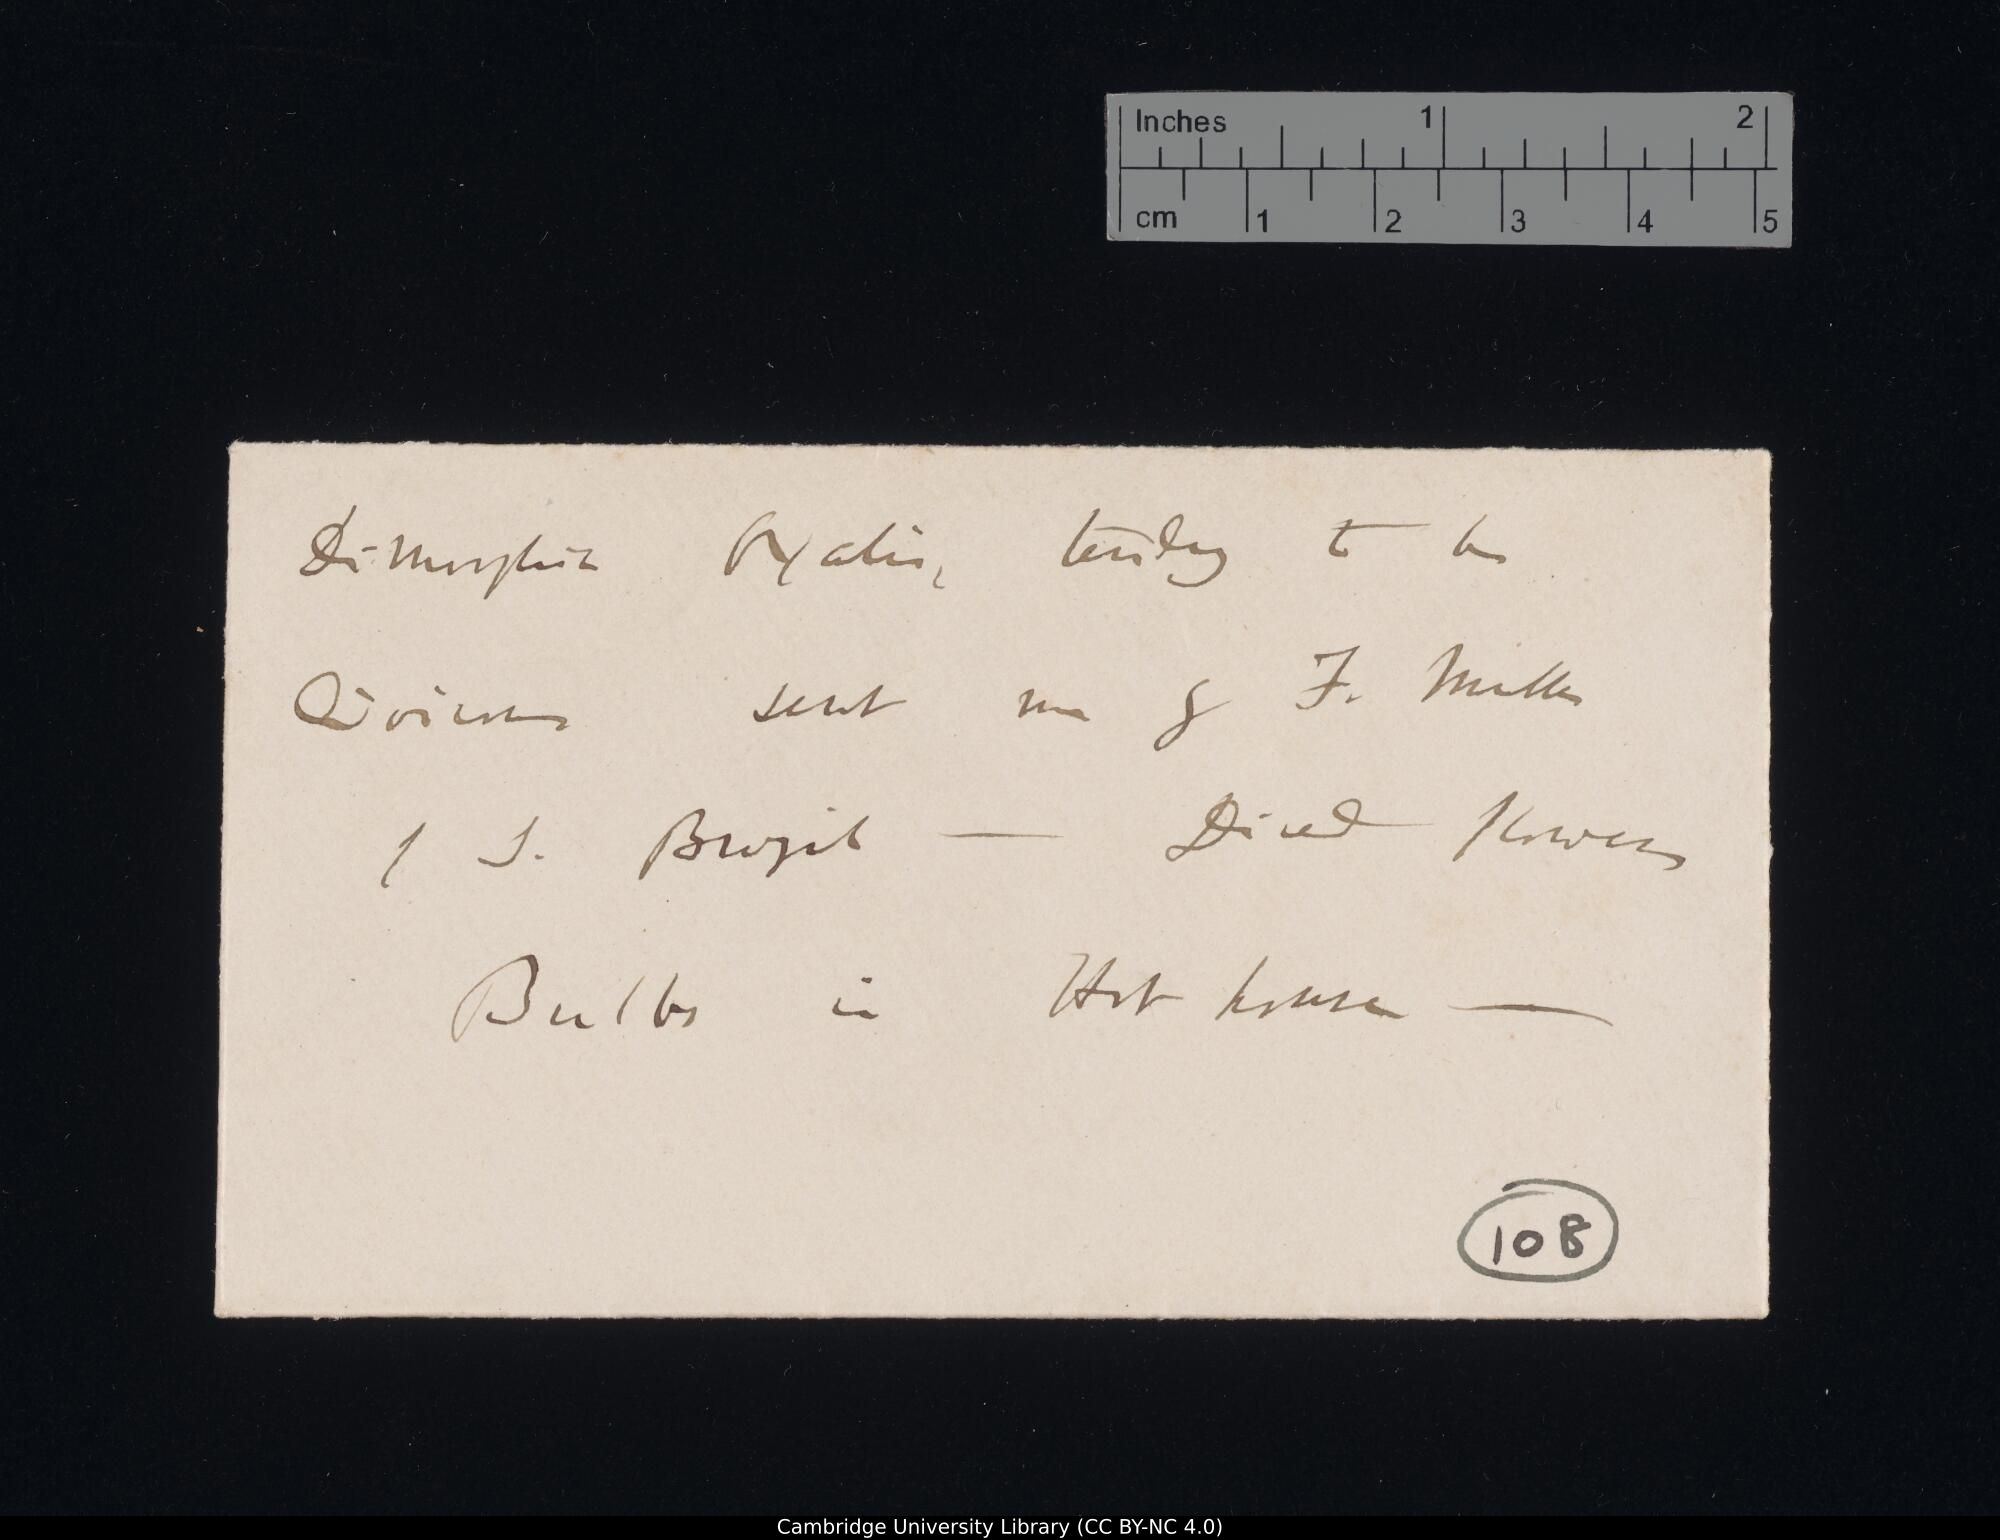 Inches 1 2
cm 1 2 3 4 5
Dimorphic Oxalis, tending to be
Dioicous sent me by F. Müller
f S. Brazil — Dried flowers
Bulbs in Hot house —
108
Cambridge University Library (CC BY-NC 4.0)